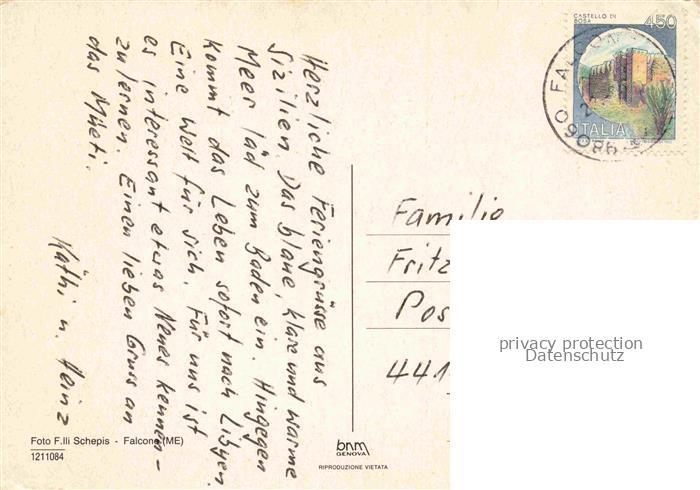 Herzliche Feriengrüsse aus
Sizilien. Das blaue, klare und warme
Meer läd zum Baden ein. Hingegen
kommt das Leben sofort nach Libyen.
Eine Welt für sich. Für uns ist
es interessant etwas Neues kennen-
zulernen. Einen lieben Gruss an
das Müeti.
Käthi u. Heinz
CASTELLO DI
BOSA
450
ITALIA
FALCONE
98060
Familie
Fritz
Pos
441
privacy protection
Datenschutz
Foto F.lli Schepis - Falcone (ME)
1211084
bnm
GENOVA
RIPRODUZIONE VIETATA